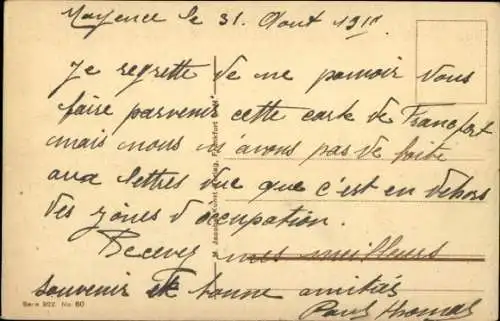 Mayence le 31. Aout 191
Je regrette de ne pouvoir vous
faire parvenir cette carte de Francfort
mais nous n'avons pas de boite
aux lettres vue que c'est en dehors
des zônes d'occupation.
Recevez mes meilleurs
souvenir et bonne amitiés
Paul Thomas
Serie 922. No. 60